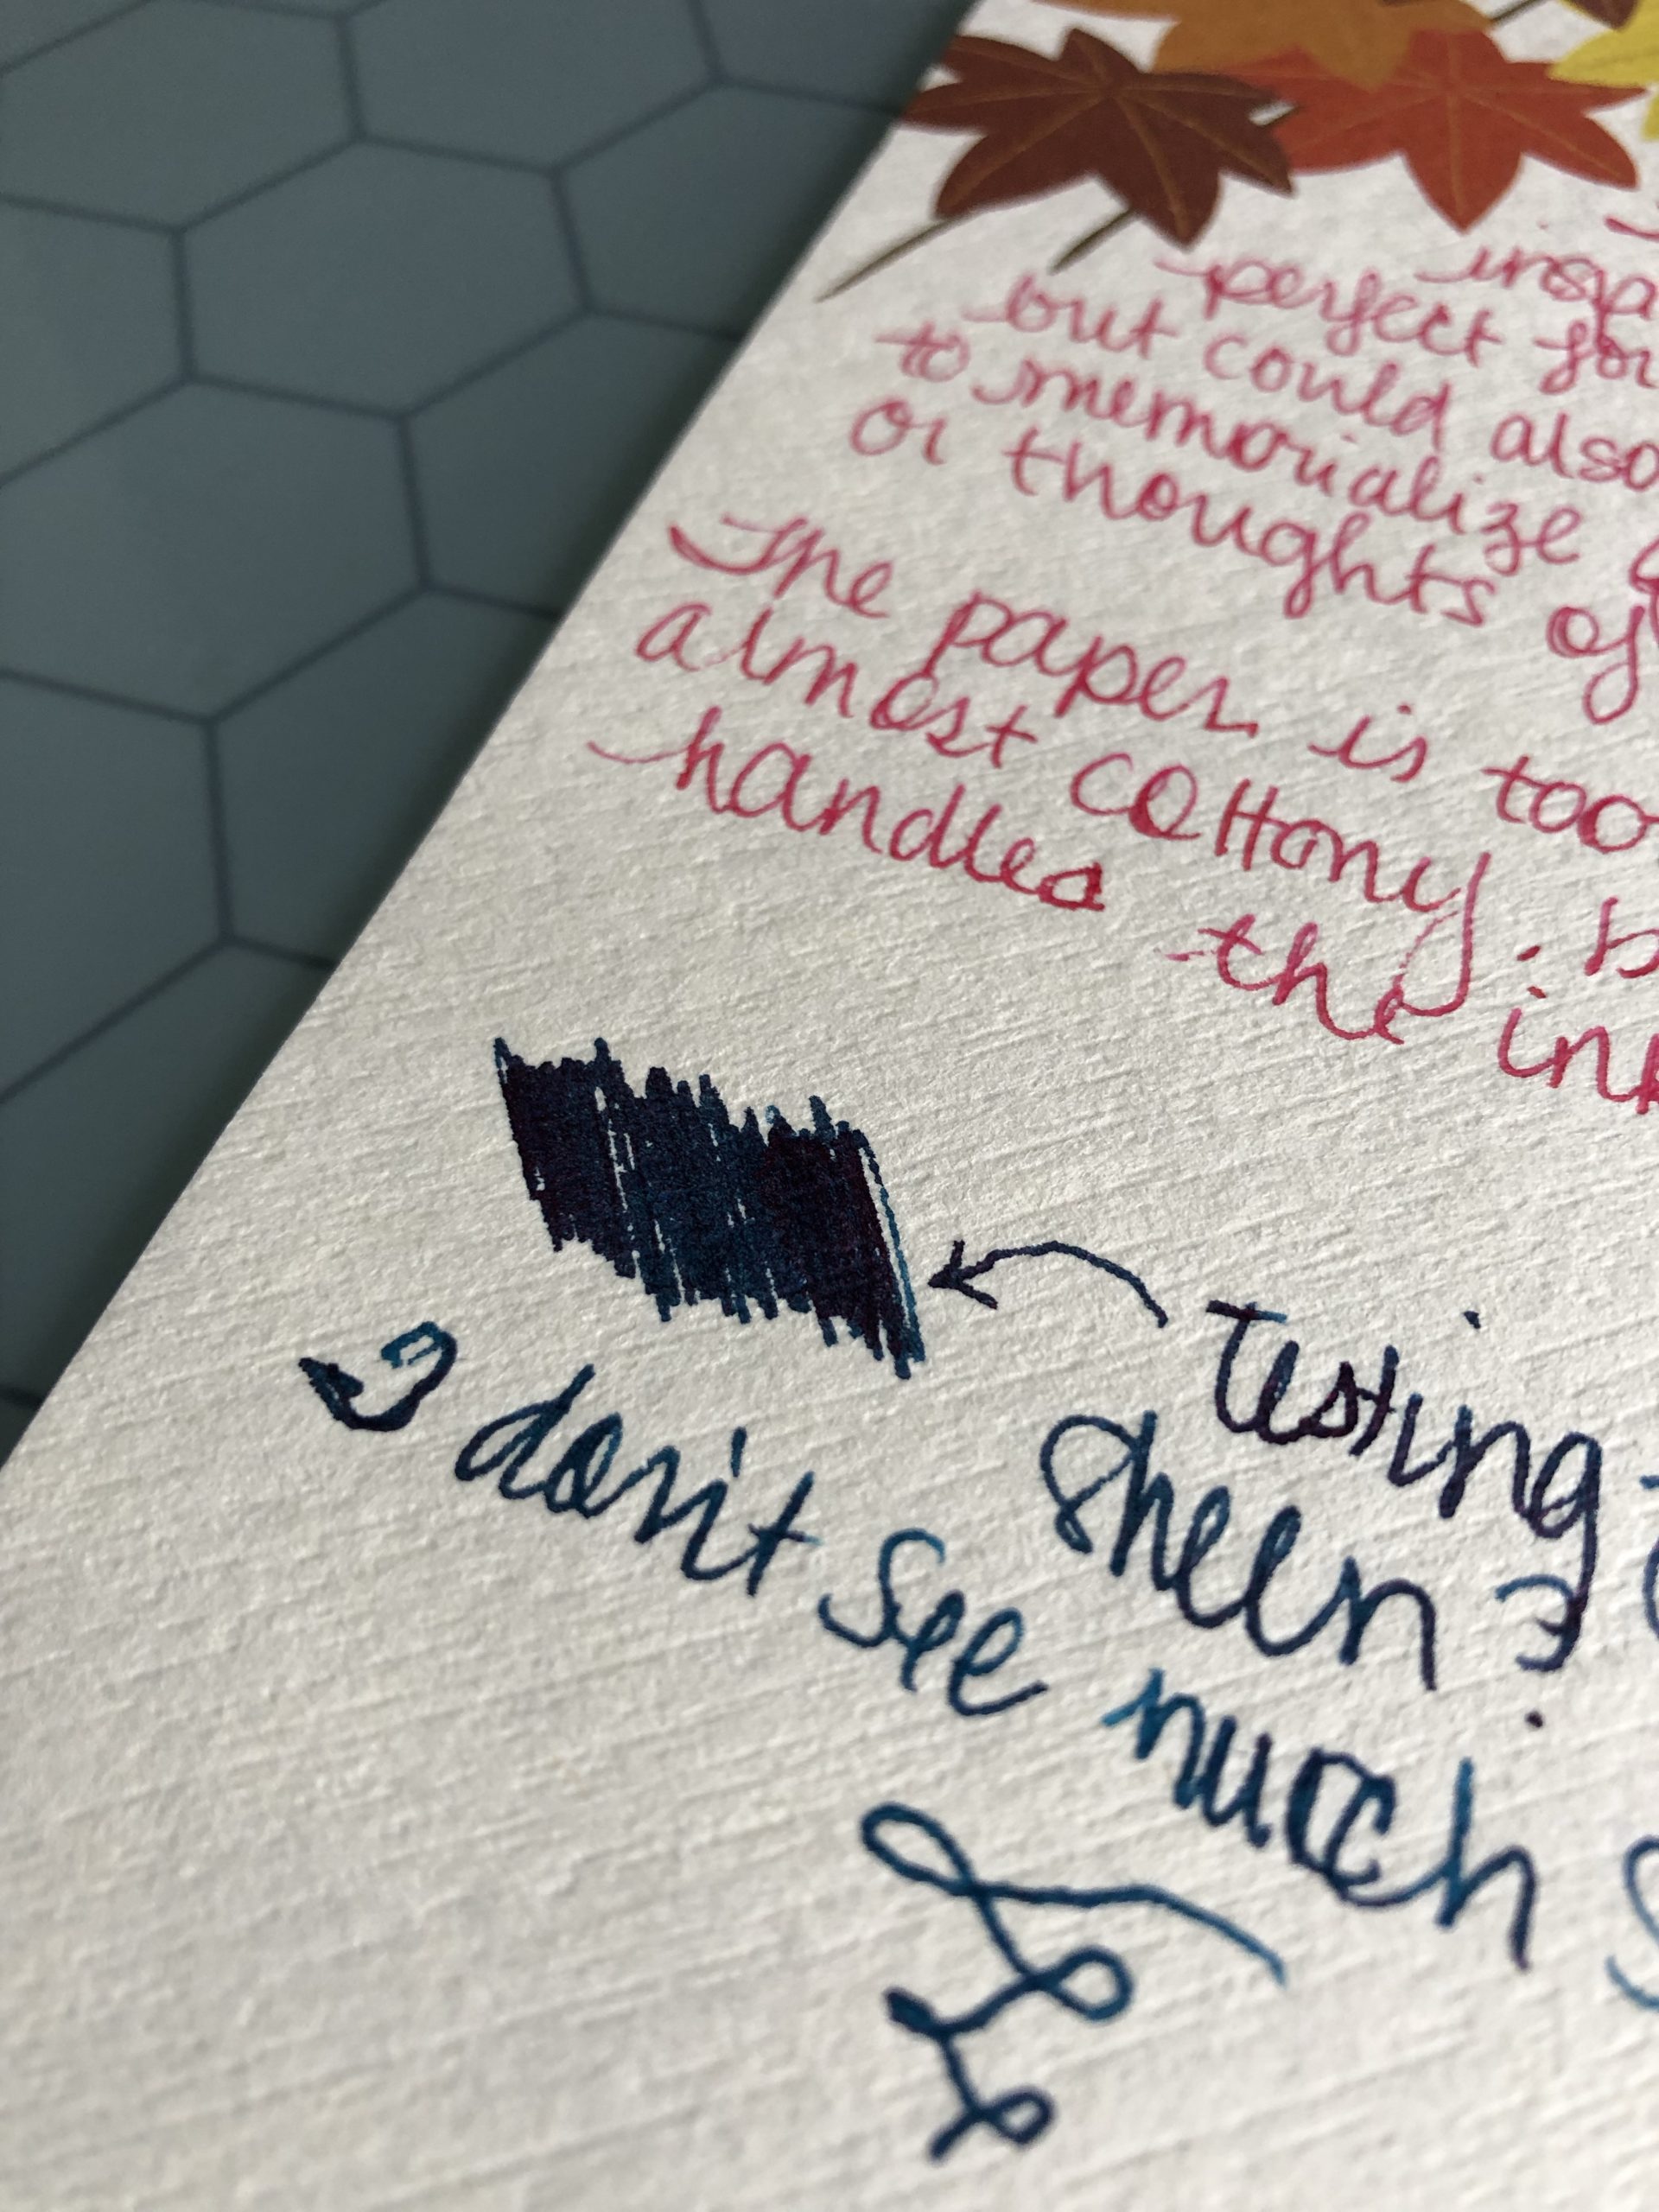 perfect for
but could also
to memorialize
or thoughts of
The paper is too
almost cottony. b
handles the ink
Testing
Sheen?
I don't see much